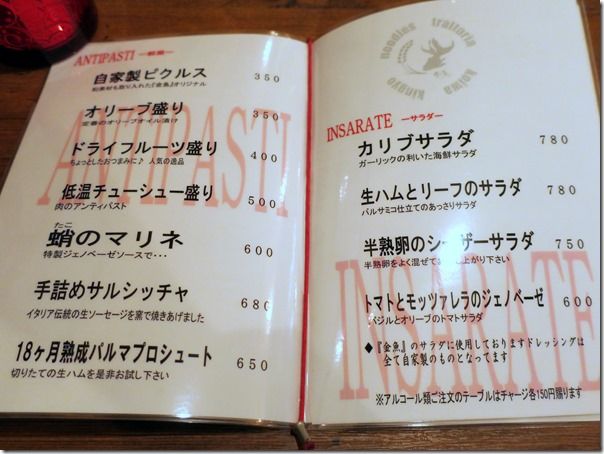 ANTIPASTI ―前菜―
自家製ピクルス 350
和素材も取り入れた『金魚』オリジナル
オリーブ盛り 350
定番のオリーブオイル漬け
ドライフルーツ盛り 400
ちょっとしたおつまみに♪ 人気の逸品
低温チューシュー盛り 500
肉のアンティパスト
たこ
蛸のマリネ 600
特製ジェノベーゼソースで・・・
手詰めサルシッチャ 680
イタリア伝統の生ソーセージを窯で焼きあげました
18ヶ月熟成パルマプロシュート 650
切りたての生ハムを是非お試し下さい
ANTIPASTI
noodles trattoria
koiwa kingyo
INSARATE ―サラダ―
カリブサラダ 780
ガーリックの利いた海鮮サラダ
生ハムとリーフのサラダ 780
バルサミコ仕立てのあっさりサラダ
半熟卵のシーザーサラダ 750
半熟卵をよく混ぜてお召し上がり下さい
トマトとモッツァレラのジェノベーゼ 600
バジルとオリーブのトマトサラダ
◆『金魚』のサラダに使用しておりますドレッシングは
全て自家製のものとなってます
INSARATE
※アルコール類ご注文のテーブルはチャージ各150円賜ります